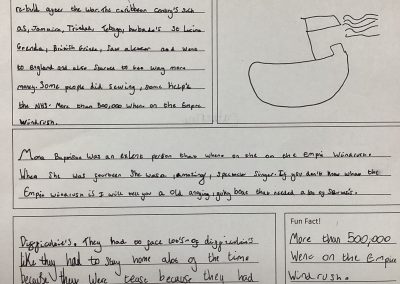 re-build after the war. The caribbean country's such
as, Jamaica, Trinidad, Tobago, barbado's St Lucina
Grenda, British Griea, Saw aleaser and went
to England and also Starves to too way more
money. Some people did sewing, some help's
the NHS. More than 500,000 where on the Empire
Windrush.
Mona Baptiste was an exlent person that where on she on the Empire Windrush.
When she was fourteen she was a amazing, spectacler singer. If you don't know where the
Empire windrush is I will tell you a old anging, going boat that needed a lot of
Difficultie's. They had to face lot's of difficulties
like they had to stay home alot of the time
because they were tease because they had
Fun Fact!
More than 500,000
Went on the Empire
Windrush.